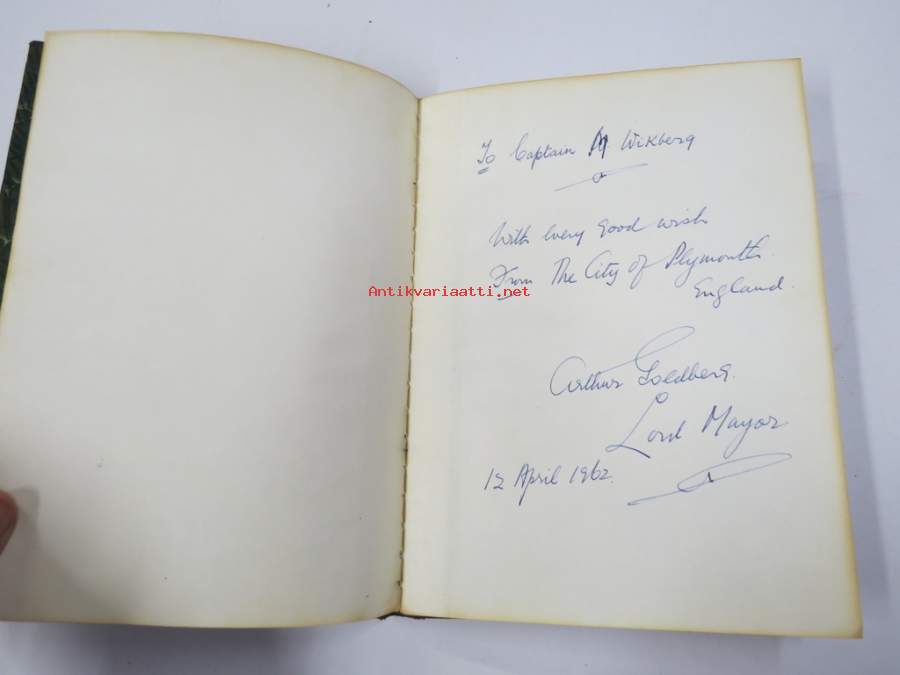 To Captain M Wikberg
With every good wish
From The City of Plymouth.
England.
Antikvariaatti.net
Arthur Goldberg.
Lord Mayor
12 April 1962.